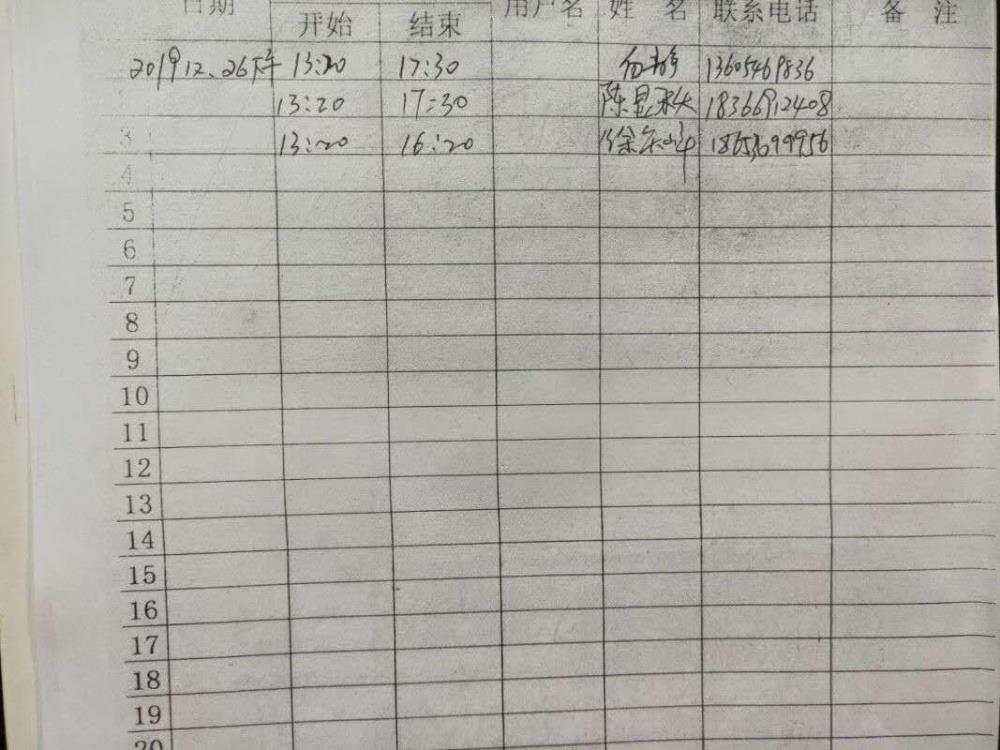 日期 用户名 姓 名 联系电话 备 注
开始 结束
2019 12、26下午 13:20 17:30 13605469836
13:20 17:30 陈显 18366912408
3 13:20 16:20 徐 18653699956
4
5
6
7
8
9
10
11
12
13
14
15
16
17
18
19
20